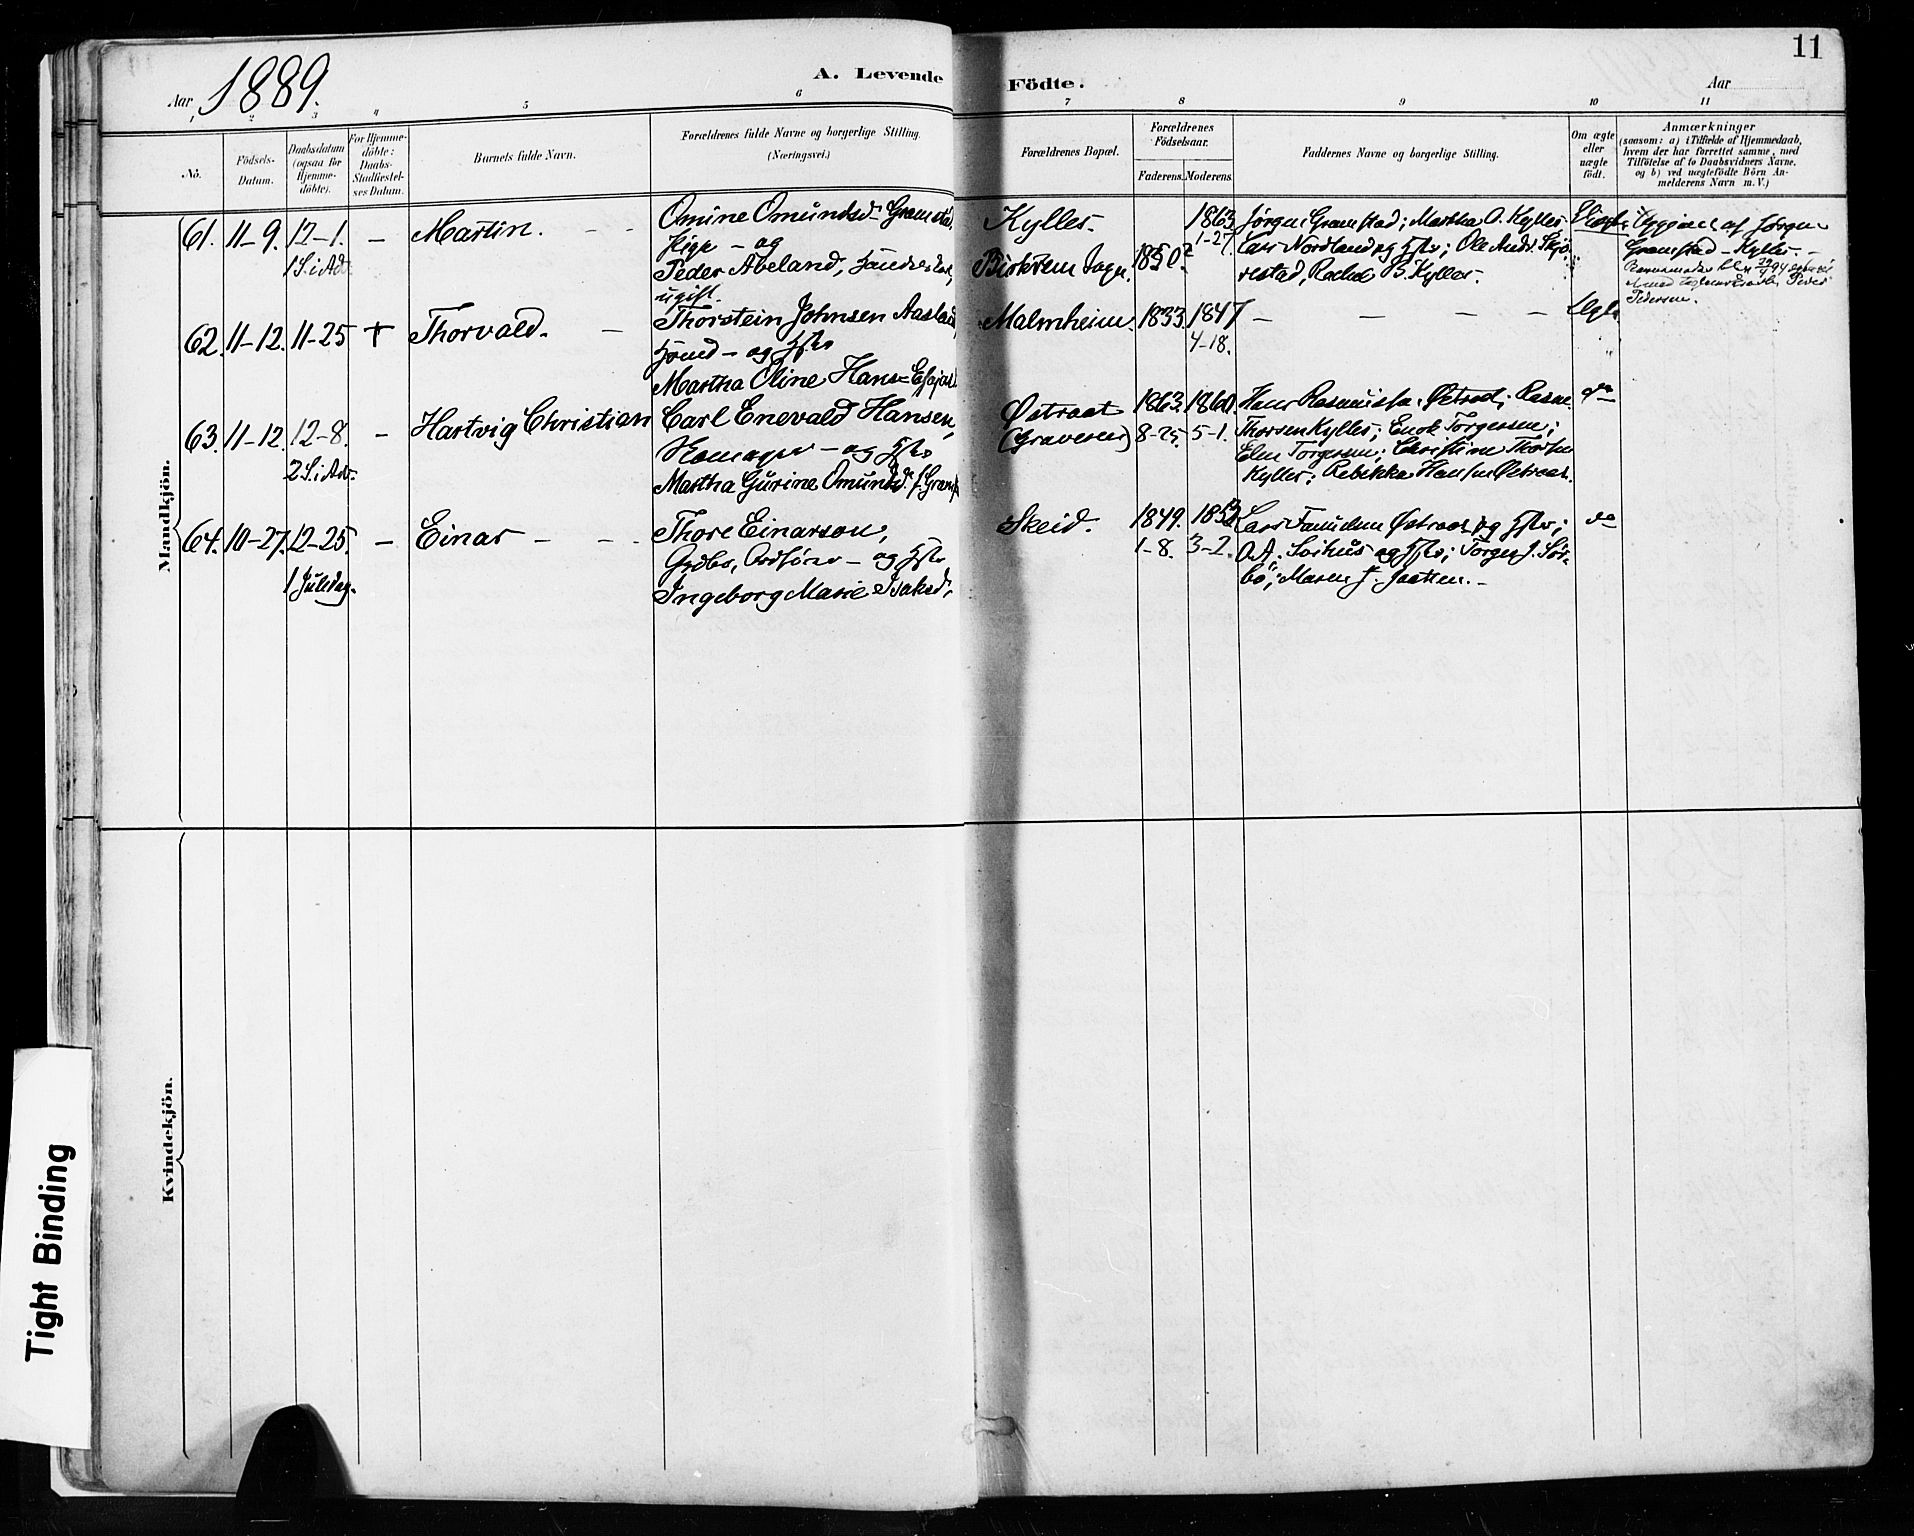 11
1889.
A. Levende Födte.
Aar
Aar
1 2 3 4 5 6 7 8 9 10 11
No.
Födsels-Datum.
Daabsdatum (ogsaa for Hjemme-döbte).
For Hjemme-döbte: Daabs-Stadfæstel-ses Datum.
Barnets fulde Navn.
Forældrenes fulde Navne og borgerlige Stilling.
(Næringsvei.)
Forældrenes Bopæl.
Forældrenes Födselsaar.
Faderens. Moderens.
Faddernes Navne og borgerlige Stilling.
Om ægte eller uægte födt.
Anmærkninger
(saasom: a) i Tilfælde af Hjemmedaab,
hvem der har forrettet samme, med
Tilföielse af to Daabsvidners Navne,
og b) ved uægtefödte Börn An-
melderens Navn m. V.)
Mandkjön.
61. 11-9. 12-1. – Martin. – –
1 S. i Ad.
Omine Omundsd. Gramstad,
Pige – og
Peder Abeland,
ugift.
Kylles.
Birkrem Sogn.
1850?
1863
1-27
Jørgen Gramstad; Martha O. Kylles
Lars Nordland og Hstr; Ole Andr. Skjø-
restad, Rachel B. Kylles.
Uægte
Opgivet af Jørgen
Gramstad – Kylles. –
Peder
Pedersen.
62. 11-12. 11-25 + Thorvald. –
Thorstein Johnsen Aasland,
– og Hstr
Martha Oline Hans
Malmheim.
1833. 1847
4-18.
– – – –
Ægte
63. 11-12. 12-8. – Hartvig Christian
2 S. i Adv.
Carl Enevald Hansen,
– og Hstr
Martha Gurine Omundsd. f. Gramst
Østraat
(Graveren)
1863. 1860.
8-25. 5-1.
Hans Rasmussen Østraat; Rasm.
Thorsen Kylles; Enok Torgersen;
Elen Torgersen; Christine Thorsen
Kylles; Rebikka Hansen Østraat.
do
64. 10-27. 12-25. – Einar – – –
1 Juledag.
Thore Einarson,
Grdbr, – og Hstr
Ingeborg Marie Isaksd.
Skeid.
1849. 1853
1-8. 3-2.
Lars Østraat og Hstr;
O. A. Soihus og Hstr; Torger J. Sør-
bø; Maren J. Jaatten. –
do
Kvindekjön.
Tight Binding